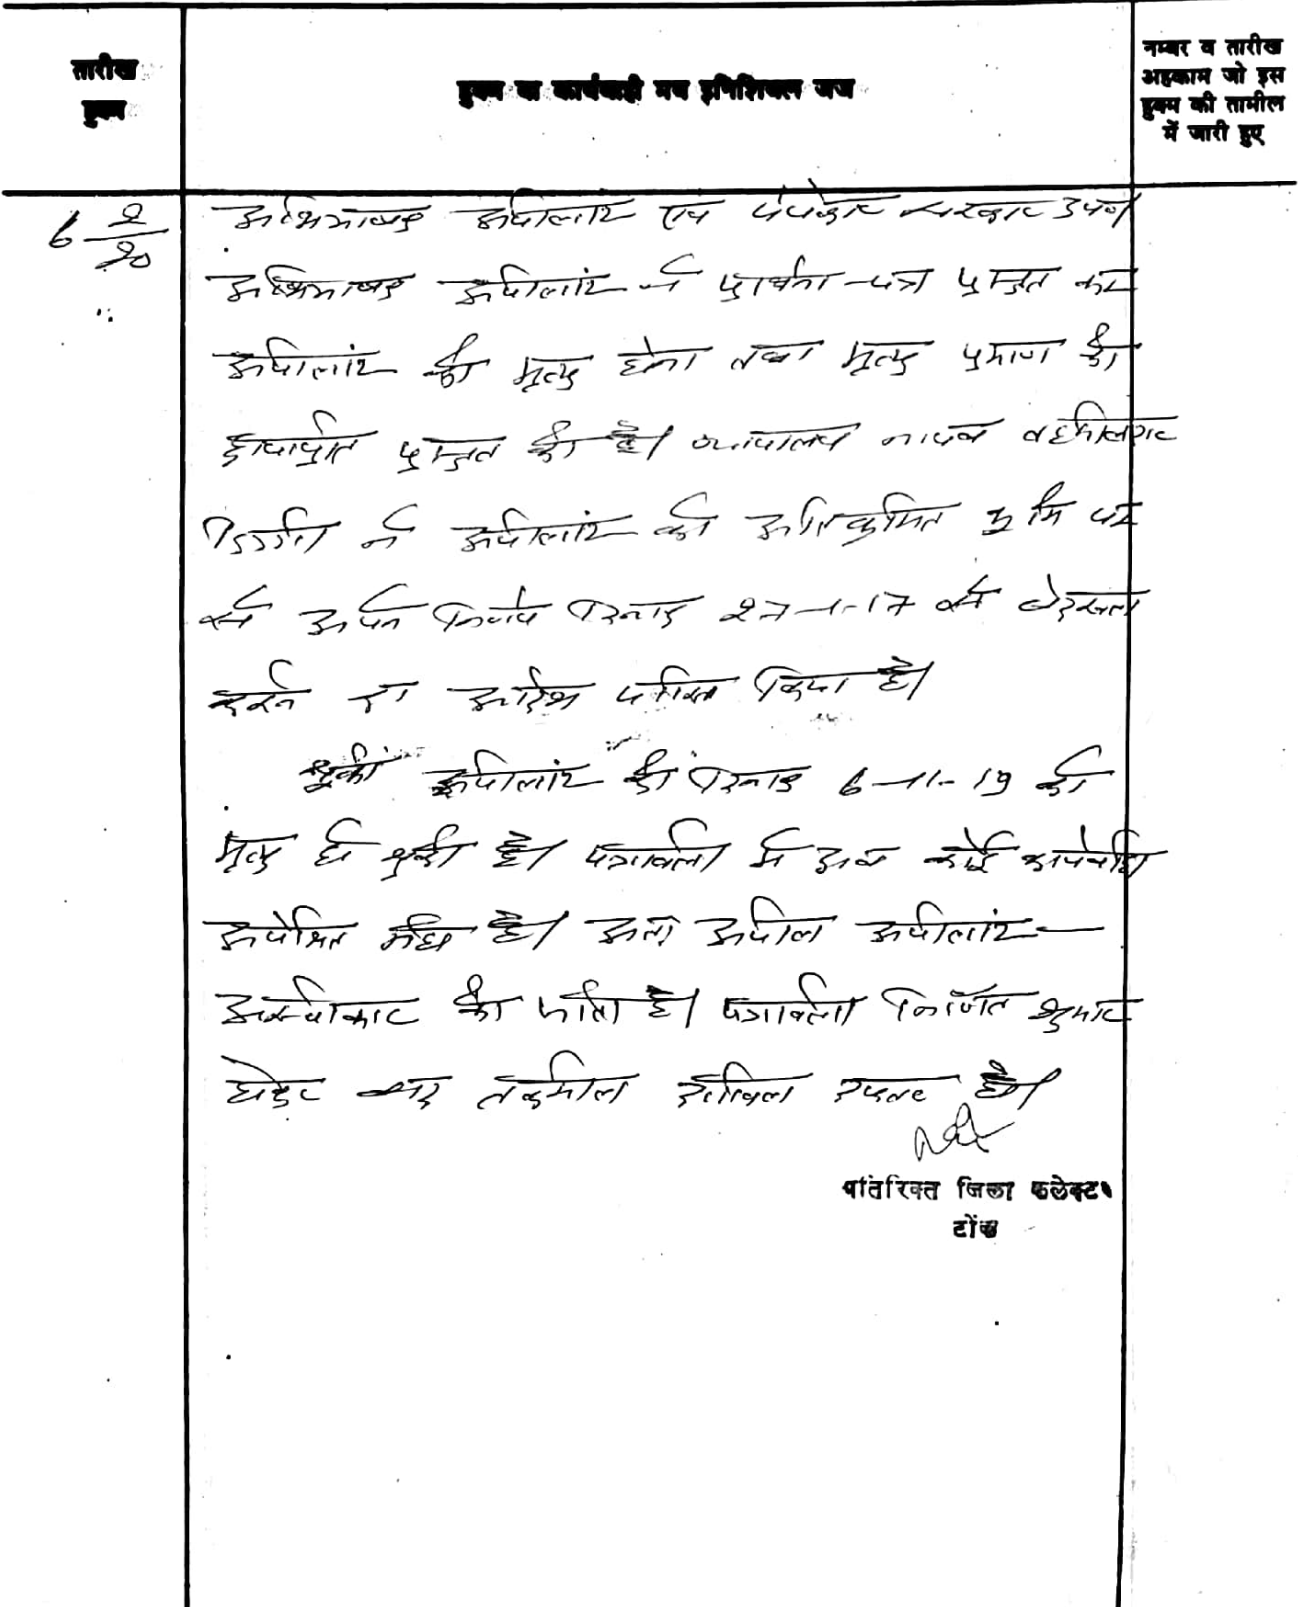 तारीख
हुक्म
हुक्म या कार्यवाही मय इनिशियल जज
नम्बर व तारीख
अहकाम जो इस
हुक्म की तामील
में जारी हुए
6 2/20
अभिभाषक अपीलांट एवं पेरोकार सरकार उप०
अभिभाषक अपीलांट ने प्रार्थना-पत्र प्रस्तुत कर
अपीलांट की मृत्यु होना तथा मृत्यु प्रमाण की
छायाप्रति प्रस्तुत की है। न्यायालय नायब तहसीलदार
ने अपीलांट को अतिक्रमित भूमि पर
से अपने निर्णय दिनांक 27-1-17 से बेदखल
करने का आदेश पारित किया है।
चूंकी अपीलांट की दिनांक 6-11-19 को
मृत्यु हो चुकी है। पत्रावली में अब कोई कार्यवाही
अपेक्षित नहीं है। अतः अपील अपीलांट
अस्वीकार की जाती है। पत्रावली निर्णित शुमार
होकर बाद तकमील दाखिल दफ्तर हो।
अतिरिक्त जिला कलेक्टर
टोंक